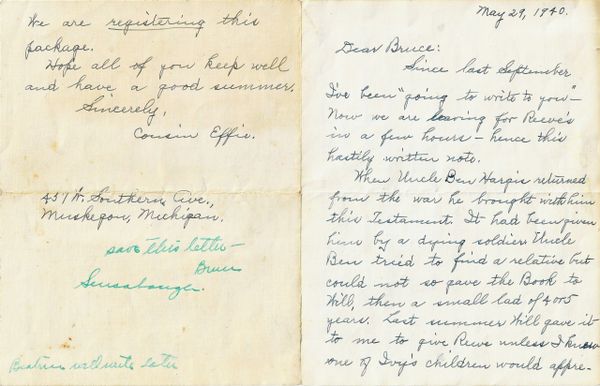 May 29, 1940.
Dear Bruce:
Since last September
I've been "going to write to you" -
Now we are leaving for Reeve's
in a few hours - hence this
hastily written note.
When Uncle Ben Hargis returned
from the war he brought with him
this Testament. It had been given
him by a dying soldier. Uncle
Ben tried to find a relative but
could not so gave the Book to
Will, then a small lad of 4 or 5
years. Last summer Will gave it
to me to give Reeve unless I knew
one of Ivy's children would appre-
We are registering this
package.
Hope all of you keep well
and have a good summer.
Sincerely,
Cousin Effie.
431 W. Southern Ave.,
Muskegon, Michigan.
save this letter -
Bruce
Sensabaugh.
Beatrice will write later